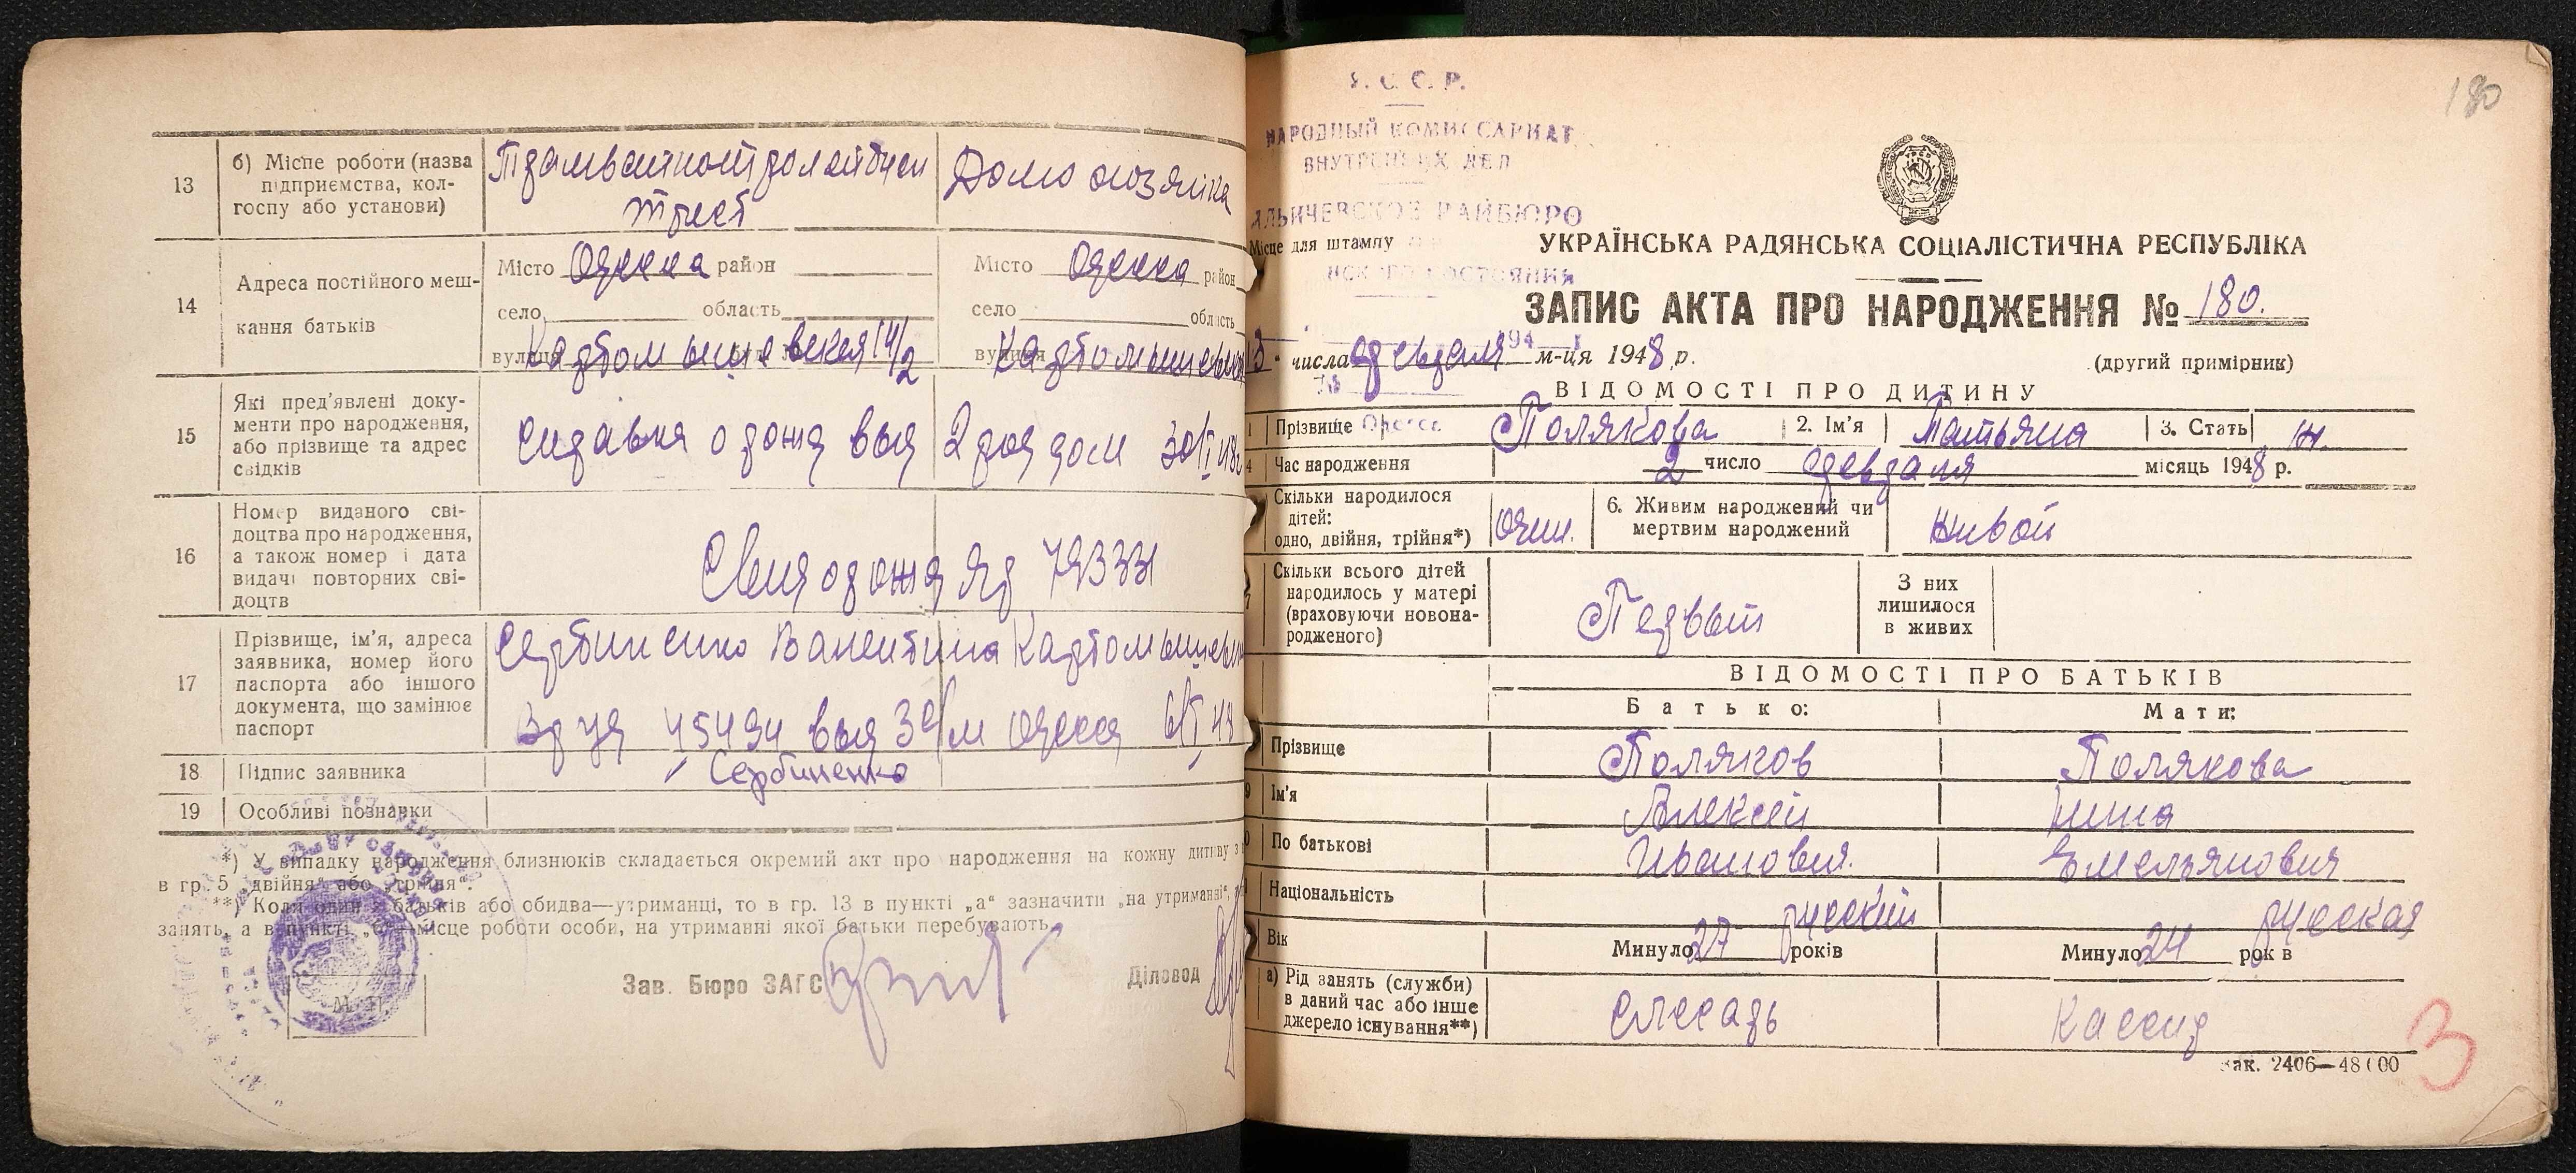 13
б) Місце роботи (назва
підприємства, кол-
госпу або установи)
трест
14
Адреса постійного меш-
кання батьків
Місто Одесса район
село область
вулиця
Місто Одесса район
село область
вулиця
15
Які пред'явлені доку-
менти про народження,
або прізвище та адрес
свідків
справка о рожд выд 2 род дом 30/I 48
16
Номер виданого сві-
доцтва про народження,
а також номер і дата
видачі повторних сві-
доцтв
793331
17
Прізвище, ім'я, адреса
заявника, номер його
паспорта або іншого
документа, що замінює
паспорт
Сербиненко Валентина
45494 выд 3 о/м Одесса
18
Підпис заявника
Сербиненко
19
Особливі познавки
*) У випадку народження близнюків складається окремий акт про народження на кожну дитину з
в гр. 5 „двійня" або „трійня".
**) Коли один з батьків або обидва—утриманці, то в гр. 13 в пункті „а" зазначити „на утриманні",
занять, а в пункті „б"—місце роботи особи, на утриманні якої батьки перебувають.
М. П.
Зав. Бюро ЗАГС
Діловод
180
НАРОДНЫЙ КОМИССАРИАТ
ВНУТРЕННИХ ДЕЛ
РАЙБЮРО
Місце для штампу
УКРАЇНСЬКА РАДЯНСЬКА СОЦІАЛІСТИЧНА РЕСПУБЛІКА
ЗАПИС АКТА ПРО НАРОДЖЕННЯ № 180.
числа февраля м-ця 1948 р.
(другий примірник)
ВІДОМОСТІ ПРО ДИТИНУ
1 Прізвище Полякова 2. Ім'я Татьяна 3. Стать ж.
4 Час народження 2 число февраля місяць 1948 р.
Скільки народилося
дітей:
одно, двійня, трійня*)
один.
6. Живим народжений чи
мертвим народжений
живой
Скільки всього дітей
народилось у матері
(враховуючи новона-
родженого)
Первый
З них
лишилося
в живих
ВІДОМОСТІ ПРО БАТЬКІВ
Батько: Мати:
Прізвище Поляков Полякова
Ім'я Алексей Нина
По батькові Ивайович. Емельянович
Національність русский русская
Вік Минуло 27 років Минуло 24 років
а) Рід занять (служби)
в даний час або інше
джерело існування**)
слесарь Кассир
Зак. 2406—48000
3